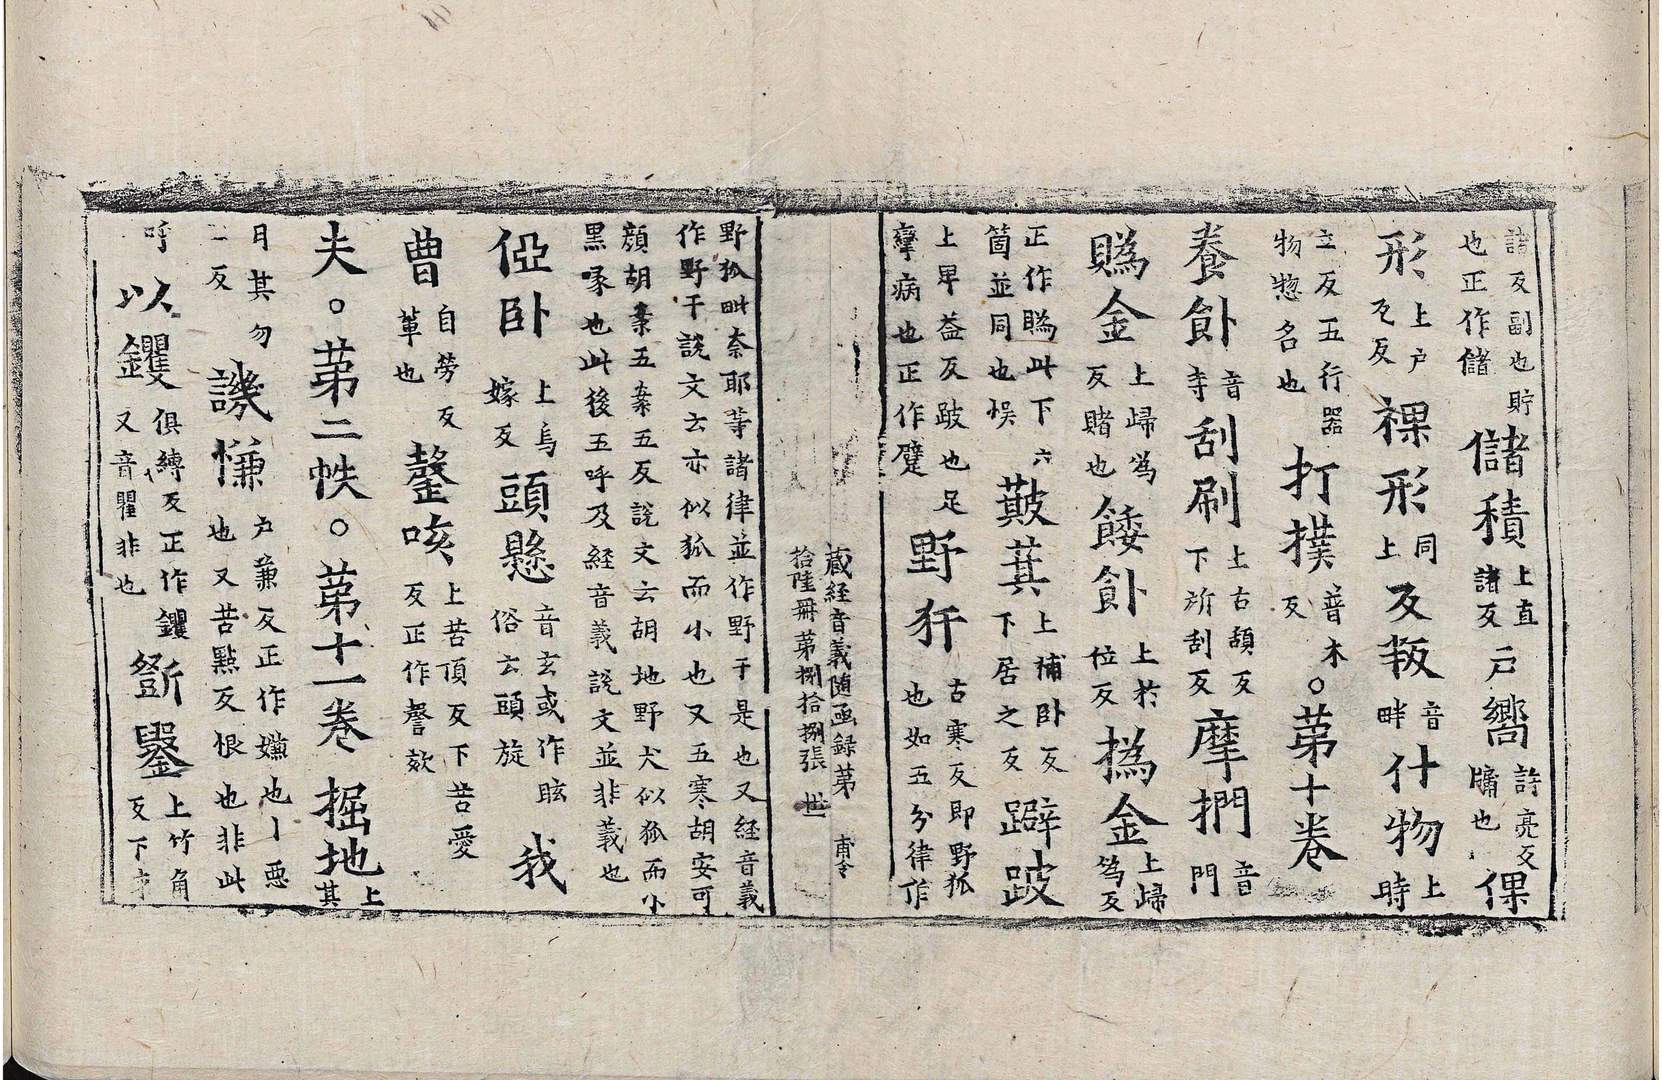 諸反副也貯也正作儲儲積上直諸反戸嚮詩亮反牖也倮
形上戶瓦反裸形同上反叛音畔什物上時
立反五行器物惣名也打撲普木反○第十卷
養飤音寺刮刷上古頡反下所刮反摩捫音門
䞈金上歸為反賭也餧飤上於位反撝金上歸為反
正作䞈此下六箇並同也悮簸萁上補卧反下居之反躃跛
上卑益反跛也足攣病也正作躄野犴古寒反即野狐也如五分律作
藏経音義随函録第
拾陸冊第捌拾捌張 世 甫令
野狐毗奈耶等諸律並作野干是也又経音義
作野干説文云亦似狐而小也又五寒胡安可
顔胡五五反説文云胡地野犬似狐而小
黒喙也此後五呼及経音義説文並非義也
俹卧上烏嫁反頭懸音玄或作眩俗云頭旋我
曹自勞反輩也謦咳上苦頂反下苦愛反正作謦欬
夫○第二帙○第十一卷掘地上其
月其勿二反譏慊戶兼反正作嫌也丨悪也又苦點反恨也非此
呼以钁俱縛反正作钁又音瞿非也斲鑿上竹角反下才